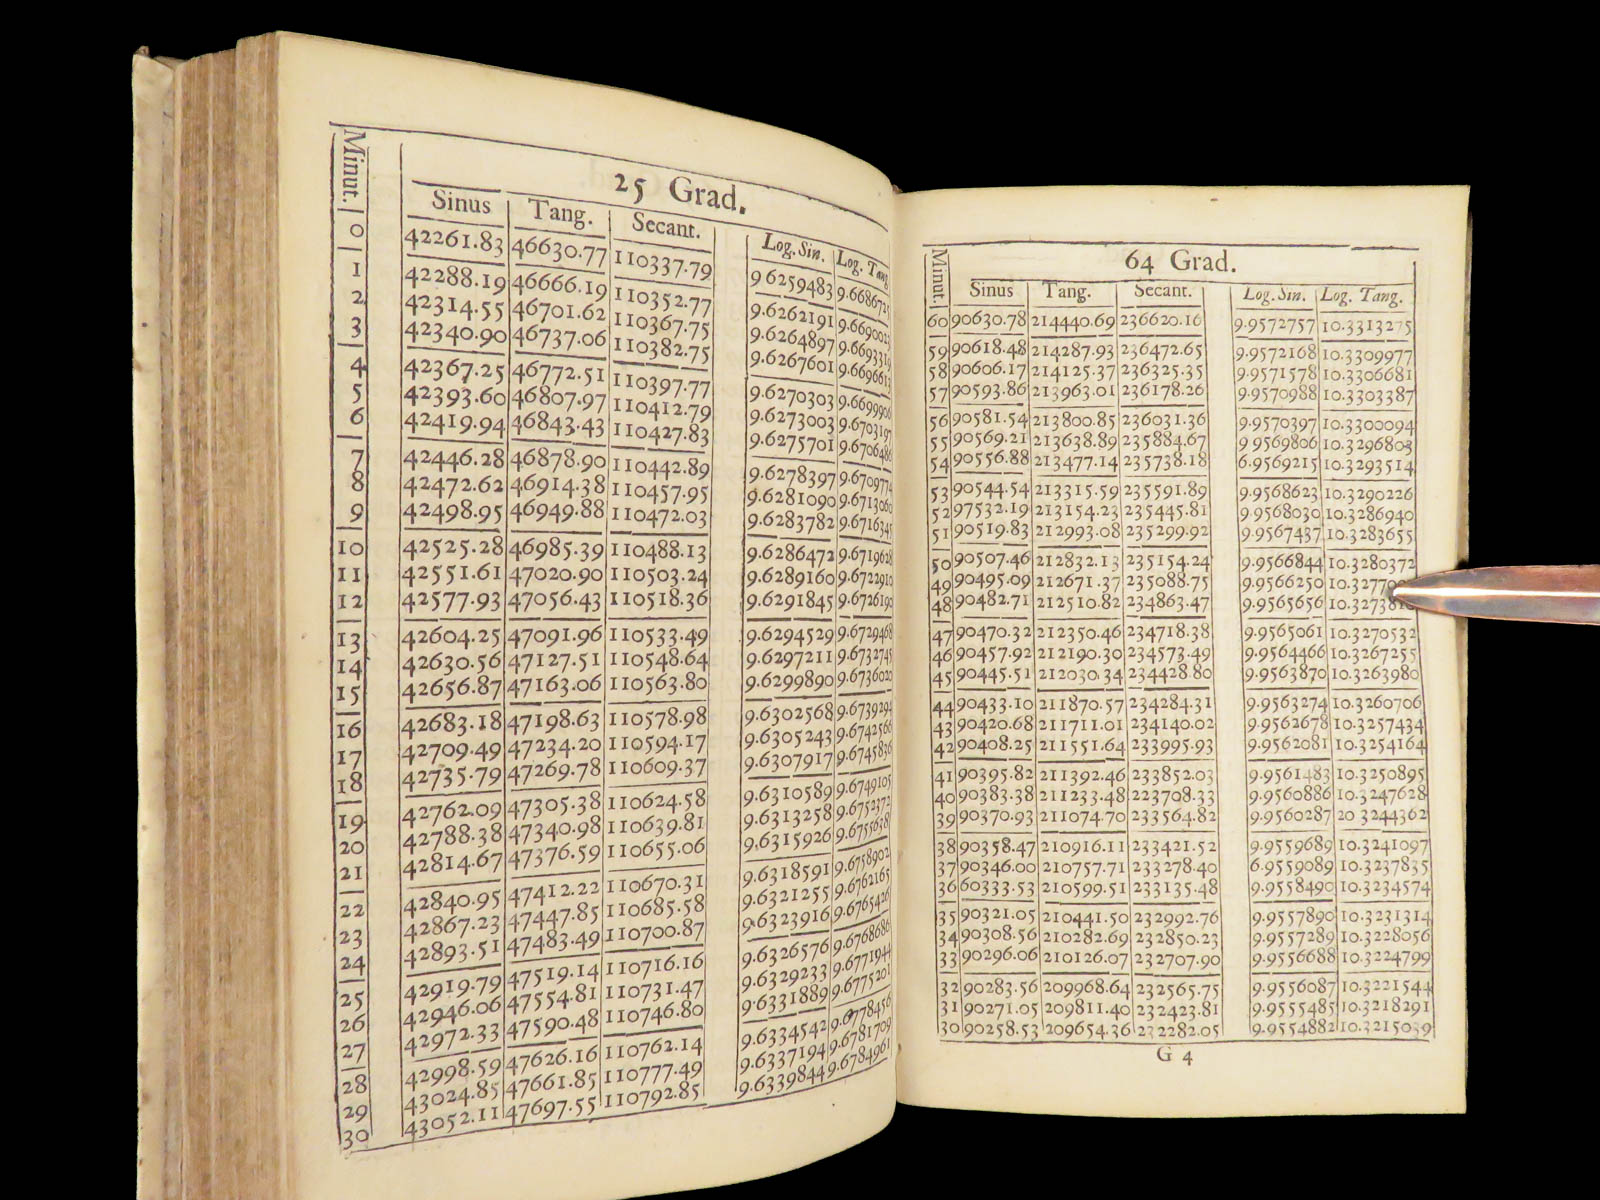 25 Grad.
Minut. Sinus Tang. Secant. Log. Sin. Log. Tang
0 42261.83 46630.77 110337.79 9.6259483 9.668672
1 42288.19 46666.19 110352.77 9.6262191 9.669002
2 42314.55 46701.62 110367.75 9.6264897 9.669331
3 42340.90 46737.06 110382.75 9.6267601 9.669661
4 42367.25 46772.51 110397.77 9.6270303 9.669990
5 42393.60 46807.97 110412.79 9.6273003 9.670319
6 42419.94 46843.43 110427.83 9.6275701 9.670648
7 42446.28 46878.90 110442.89 9.6278397 9.670977
8 42472.62 46914.38 110457.95 9.6281090 9.671306
9 42498.95 46949.88 110472.03 9.6283782 9.671634
10 42525.28 46985.39 110488.13 9.6286472 9.671962
11 42551.61 47020.90 110503.24 9.6289160 9.672291
12 42577.93 47056.43 110518.36 9.6291845 9.672619
13 42604.25 47091.96 110533.49 9.6294529 9.6729468
14 42630.56 47127.51 110548.64 9.6297211 9.673274
15 42656.87 47163.06 110563.80 9.6299890 9.673602
16 42683.18 47198.63 110578.98 9.6302568 9.6739294
17 42709.49 47234.20 110594.17 9.6305243 9.6742566
18 42735.79 47269.78 110609.37 9.6307917 9.6745836
19 42762.09 47305.38 110624.58 9.6310589 9.6749105
20 42788.38 47340.98 110639.81 9.6313258 9.6752372
21 42814.67 47376.59 110655.06 9.6315926 9.6755638
22 42840.95 47412.22 110670.31 9.6318591 9.6758902
23 42867.23 47447.85 110685.58 9.6321255 9.6762165
24 42893.51 47483.49 110700.87 9.6323916 9.6765426
25 42919.79 47519.14 110716.16 9.6326576 9.6768686
26 42946.06 47554.81 110731.47 9.6329233 9.6771944
27 42972.33 47590.48 110746.80 9.6331889 9.6775201
28 42998.59 47626.16 110762.14 9.6334542 9.6778456
29 43024.85 47661.85 110777.49 9.6337194 9.6781709
30 43052.11 47697.55 110792.85 9.6339844 9.6784961
64 Grad.
Minut. Sinus Tang. Secant. Log. Sin. Log. Tang.
60 90630.78 214440.69 236620.16 9.9572757 10.3313275
59 90618.48 214287.93 236472.65 9.9572168 10.3309977
58 90606.17 214125.37 236325.35 9.9571578 10.3306681
57 90593.86 213963.01 236178.26 9.9570988 10.3303387
56 90581.54 213800.85 236031.36 9.9570397 10.3300094
55 90569.21 213638.89 235884.67 9.9569806 10.3296803
54 90556.88 213477.14 235738.18 6.9569215 10.3293514
53 90544.54 213315.59 235591.89 9.9568623 10.3290226
52 97532.19 213154.23 235445.81 9.9568030 10.3286940
51 90519.83 212993.08 235299.92 9.9567437 10.3283655
50 90507.46 212832.13 235154.24 9.9566844 10.3280372
49 90495.09 212671.37 235088.75 9.9566250 10.3277
48 90482.71 212510.82 234863.47 9.9565656 10.3273
47 90470.32 212350.46 234718.38 9.9565061 10.3270532
46 90457.92 212190.30 234573.49 9.9564466 10.3267255
45 90445.51 212030.34 234428.80 9.9563870 10.3263980
44 90433.10 211870.57 234284.31 9.9563274 10.3260706
43 90420.68 211711.01 234140.02 9.9562678 10.3257434
42 90408.25 211551.64 233995.93 9.9562081 10.3254164
41 90395.82 211392.46 233852.03 9.9561483 10.3250895
40 90383.38 211233.48 223708.33 9.9560886 10.3247628
39 90370.93 211074.70 233564.82 9.9560287 20 3244362
38 90358.47 210916.11 233421.52 9.9559689 10.3241097
37 90346.00 210757.71 233278.40 6.9559089 10.3237835
36 60333.53 210599.51 233135.48 9.9558490 10.3234574
35 90321.05 210441.50 232992.76 9.9557890 10.3231314
34 90308.56 210282.69 232850.23 9.9557289 10.3228056
33 90296.06 210126.07 232707.90 9.9556688 10.3224799
32 90283.56 209968.64 232565.75 9.9556087 10.3221544
31 90271.05 209811.40 232423.81 9.9555485 10.3218291
30 90258.53 209654.36 232282.05 9.9554882 10.3215039
G 4